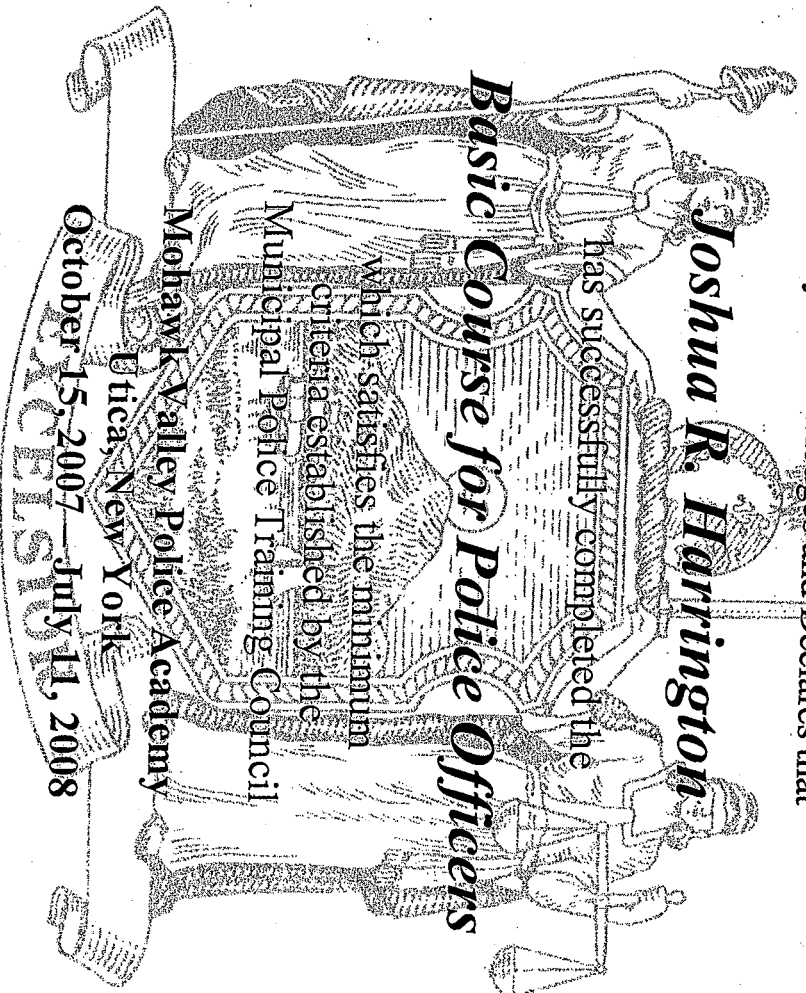 and Declares that
Joshua R. Harrington
has successfully completed the
Basic Course for Police Officers
which satisfies the minimum
criteria established by the
Municipal Police Training Council
Mohawk Valley Police Academy
Utica, New York
October 15, 2007 — July 11, 2008
EXCELSIOR